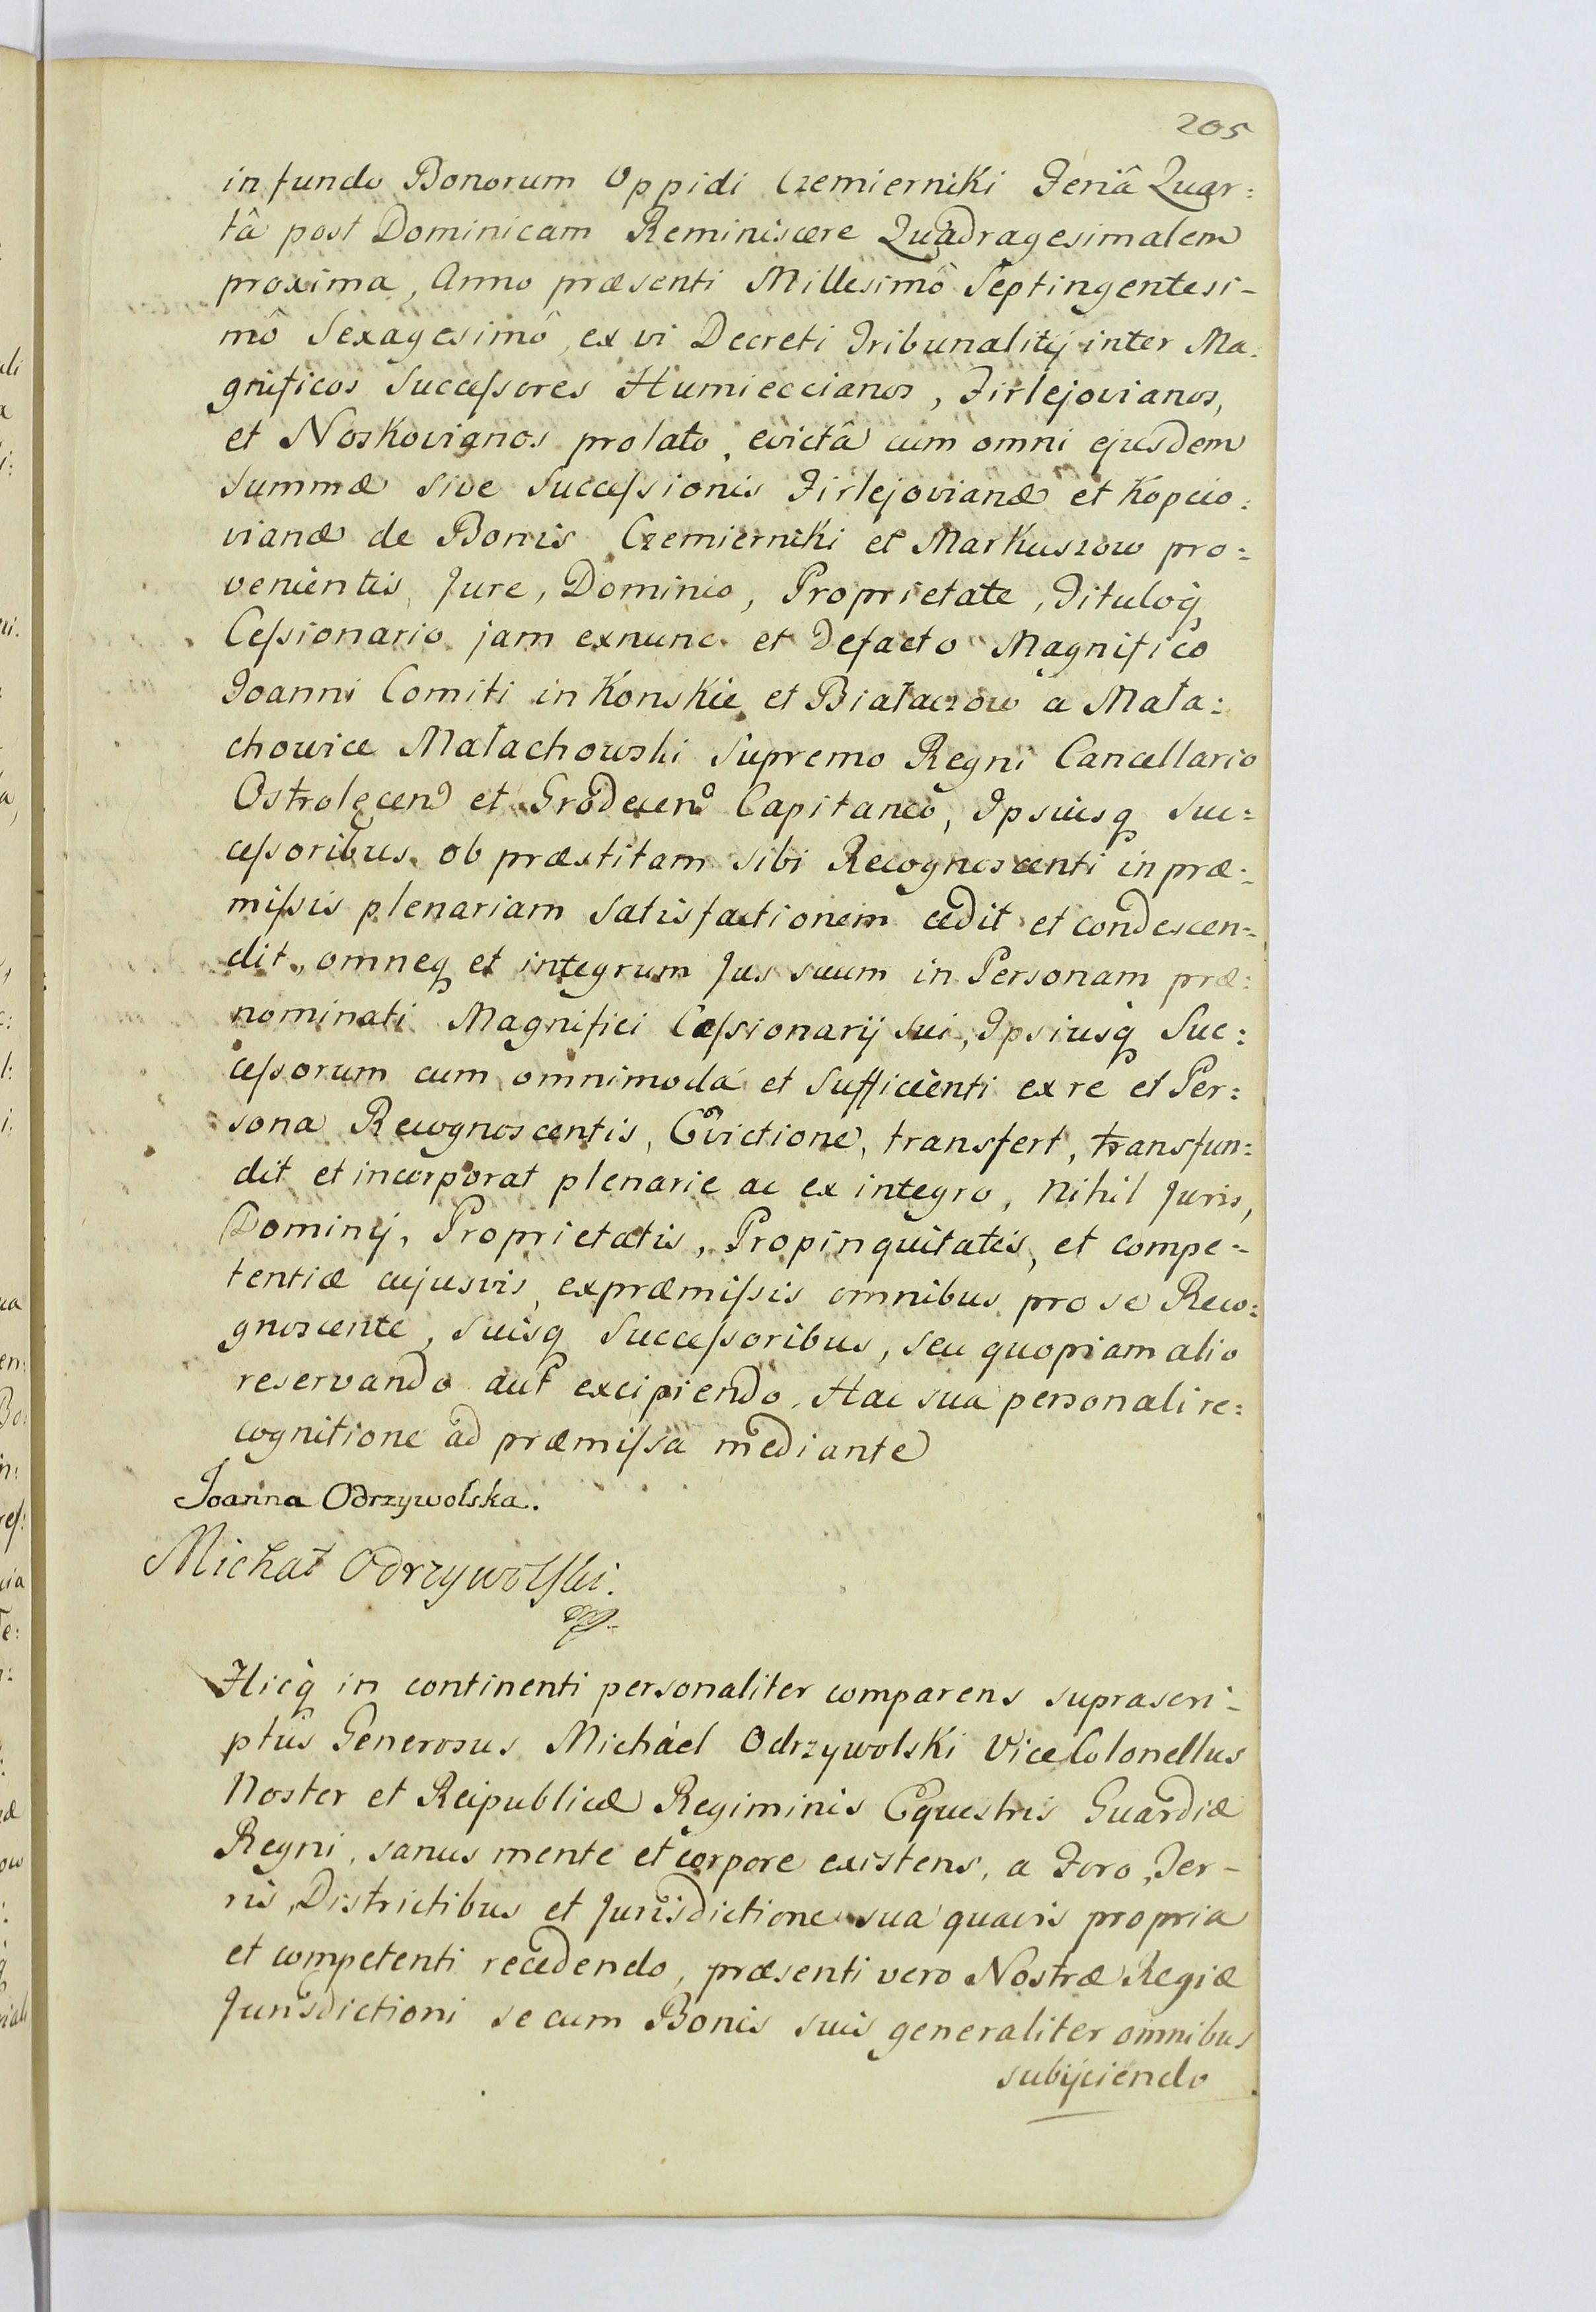 205
in fundo Bonorum Oppidi Czemierniki Feriâ Quar:
tâ post Dominicam Reminiscere Quadragesimalem
proxima, Anno præsenti Millesimô Septingentesi-
mô Sexagesimô, ex vi Decreti Tribunalitij inter Ma:
gnificos Succeſsores Humieccianos, Firlejovianos,
et Noskovianos prolato, evictâ cum omni ejusdem
Summæ sive Succeſsionis Firlejovianæ et Kopcio:
vianæ de Bonis Czemierniki et Markuszow pro:
venientis, Jure, Dominio, Proprietate, Tituloq,
Ceſsionario jam exnunc et defacto Magnifico
Joanni Comiti in Konskie et Białaczow a Mała:
chowice Małachowski Supremo Regni Cancellario
Ostrołęcen et Grodecen Capitaneo, Ipsiusq Suc:
ceſsoribus ob præstitam sibi Recognoscenti in præ:
miſsis plenariam Satisfactionem cedit et condescen:
dit, omneq et integrum Jus suum in Personam præ:
nominati Magnifici Ceſsionarij sui, Ipsiusq Suc:
ceſsorum cum omnimoda et Sufficienti ex re et Per:
sona Recognoscentis, Evictione, transfert, transfun:
dit et incorporat plenarie ac ex integro, Nihil Juris,
Dominij, Proprietatis, Propinquitatis, et compe:
tentiæ cujusvis, expræmiſsis omnibus pro se Reco:
gnoscente, Suisq Succeſsoribus, seu quopiam alio
reservando aut excipiendo. Hac sua personali re:
cognitione ad præmiſsa mediante
Joanna Odrzywolska.
Michał Odrzywolſki.
Hicq in continenti personaliter comparens suprascri-
ptus Generosus Michael Odrzywolski ViceColonellus
Noster et Reipublicæ Regiminis Equestris Guardiæ
Regni, sanus mente et corpore existens, a Foro, Ter-
ris, Districtibus et Jurisdictione sua quavis propria
et competenti recedendo, præsenti vero Nostræ Regiæ
Jurisdictioni se cum Bonis suis generaliter omnibus
subijciendo